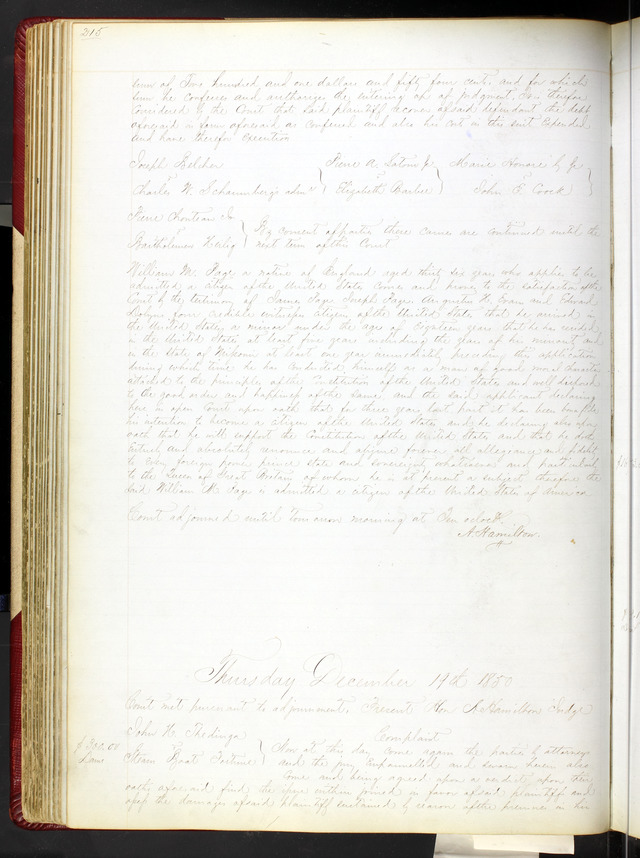 215
sum of Five hundred and one dollars and fifty four cents and for which
sum he confesses and authorizes the entering up of judgment, It is therefore
Considered by the Court that said plaintiff recover of said defendant the debt
aforesaid in form aforesaid as confessed and also his costs in this suit Expended
and have thereof Execution
Joseph Belcher
Charles W. Schaumberg's adm
Pierre A.
Elizabeth Barbee
Marie Honore
John F. Cook
Pierre Chouteau Jr
Bartholomew
By consent of parties these causes are continued until the
next term of this Court
William M. Page a native of England aged thirty six years who applies to be
admitted a citizen of the United States Comes and proves to the satisfaction of the
Court by the testimony of James Page Joseph Page Augustus H. Evans and Edward
four credible witnesses citizens of the United States that he arrived in
the United States, a minor under the age of Eighteen years that he has resided
in the United States at least five years including the years of his minority and
in the State of Missouri at least one year immediately preceding this application
during which time he has conducted himself as a man of good moral character
attached to the principles of the Constitution of the United States and well disposed
to the good order and happiness of the same and the said applicant declaring
here in open Court upon oath that for three years last past it has been bona fide
his intention to become a citizen of the United States and he declaring also upon
oath that he will support the Constitution of the United States and that he doth
entirely and absolutely renounce and abjure forever all allegiance and fidelity
to Every foreign power prince state and sovereignty whatsoever and particularly
to the Queen of Great Britain of whom he is at present a subject therefore the
said William M. Page is admitted a citizen of the United States of America
Court adjourned until Tomorrow morning at Ten oclock.
A. Hamilton
Thursday December 19th 1850
Court met pursuant to adjournment. Present Hon A. Hamilton Judge
John H. Thedinga
Complaint
Steam Boat Fortune
Now at this day come again the parties by attorneys
and the jury Empannelled and sworn herein also
Come and being agreed upon a verdict upon their
oaths aforesaid find the issue within joined in favor of said plaintiff and
assess the damages of said plaintiff sustained by reason of the premises in his